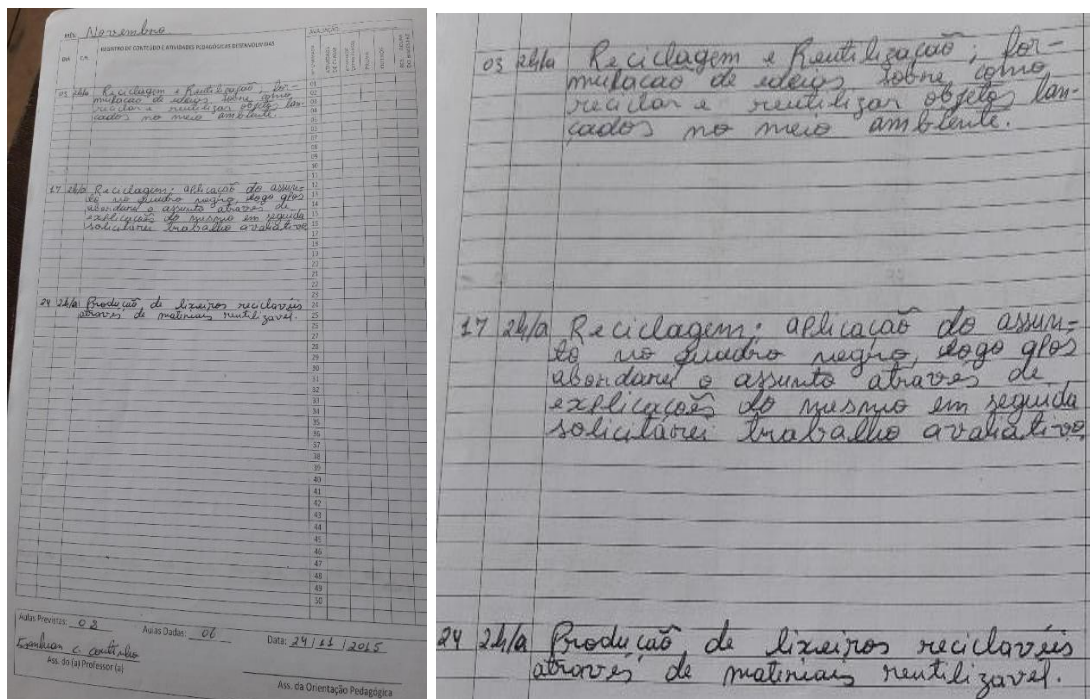 MÊS: Novembro
DIA C.H. REGISTRO DE CONTEÚDO E ATIVIDADES PEDAGÓGICAS DESENVOLVIDAS
AVALIAÇÃO
03 2h/a Reciclagem e Reutilização; for-
mulacao de edeias sobre como
reciclar e reutilizar objetos lan-
çados no meio ambiente.
17 2h/a Reciclagem: aplicação do assun-
to no quadro negro, logo após
abordarei o assunto através de
explicações do mesmo em seguida
solicitarei trabalho avaliativo
24 2h/a Produção de lixeiros reciclavéis
através de matiriais reutilizavel.
Aulas Previstas: 08 Aulas Dadas: 06 Data: 24/11/2015
Ass. do (a) Professor (a)
Ass. da Orientação Pedagógica
03 2h/a Reciclagem e Reutilização; for-
mulacao de edeias sobre como
reciclar e reutilizar objetos lan-
çados no meio ambiente.
17 2h/a Reciclagem: aplicação do assun-
to no quadro negro, logo após
abordarei o assunto através de
explicações do mesmo em seguida
solicitarei trabalho avaliativo
24 2h/a Produção de lixeiros reciclavéis
através de matiriais reutilizavel.